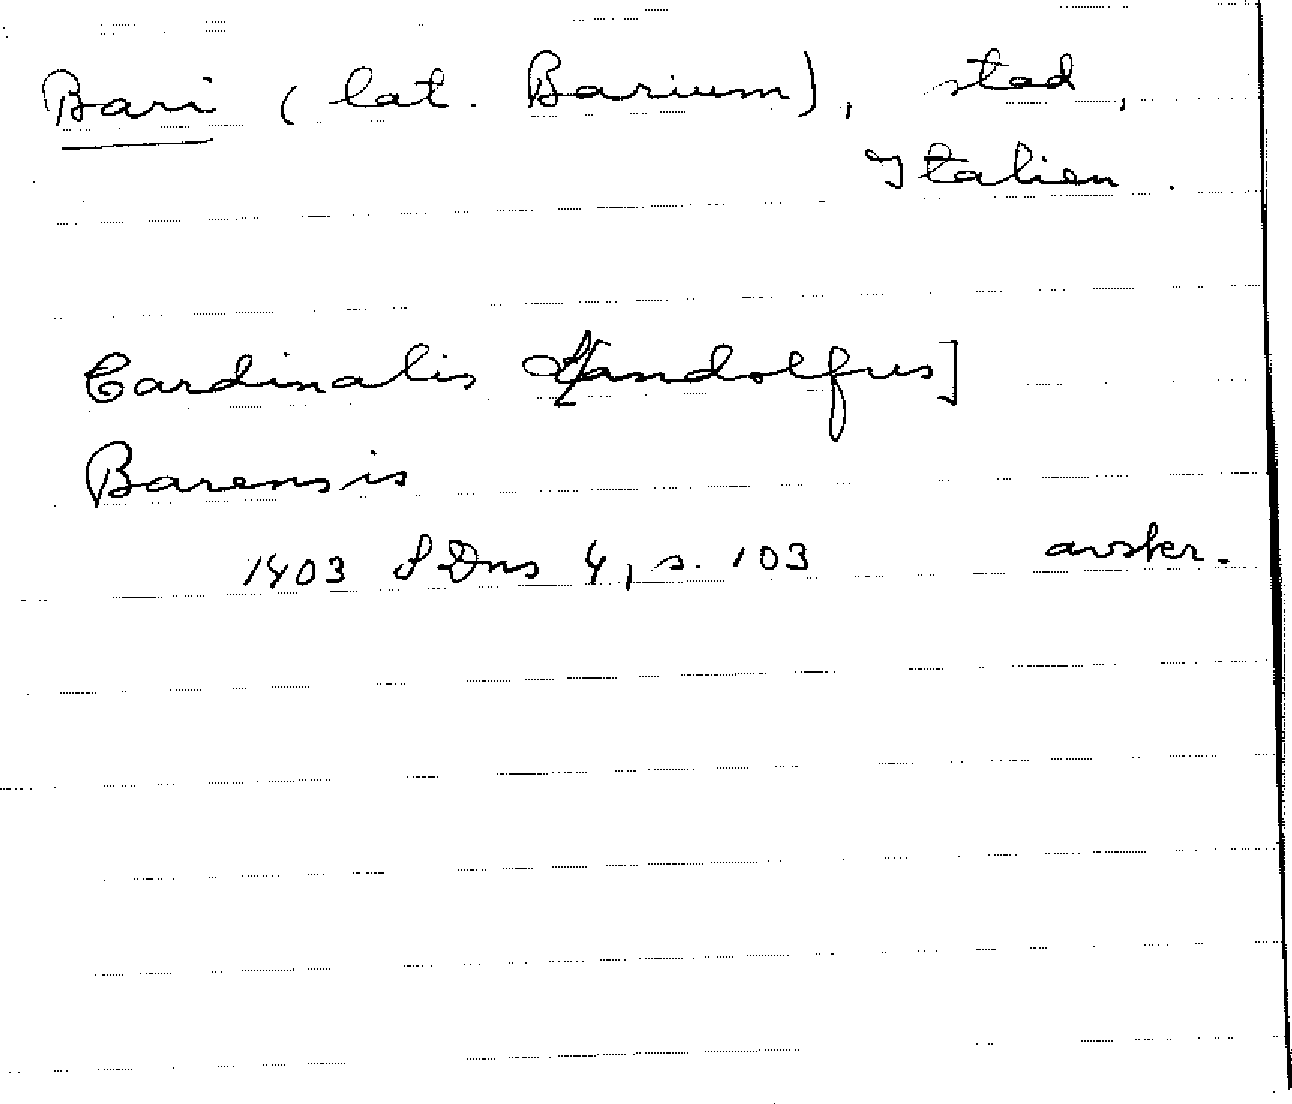 Bari (lat. Barium), stad,
Italien.
Cardinalis [Landolfus]
Barensis
1403 SDns 4, s. 103 avskr.